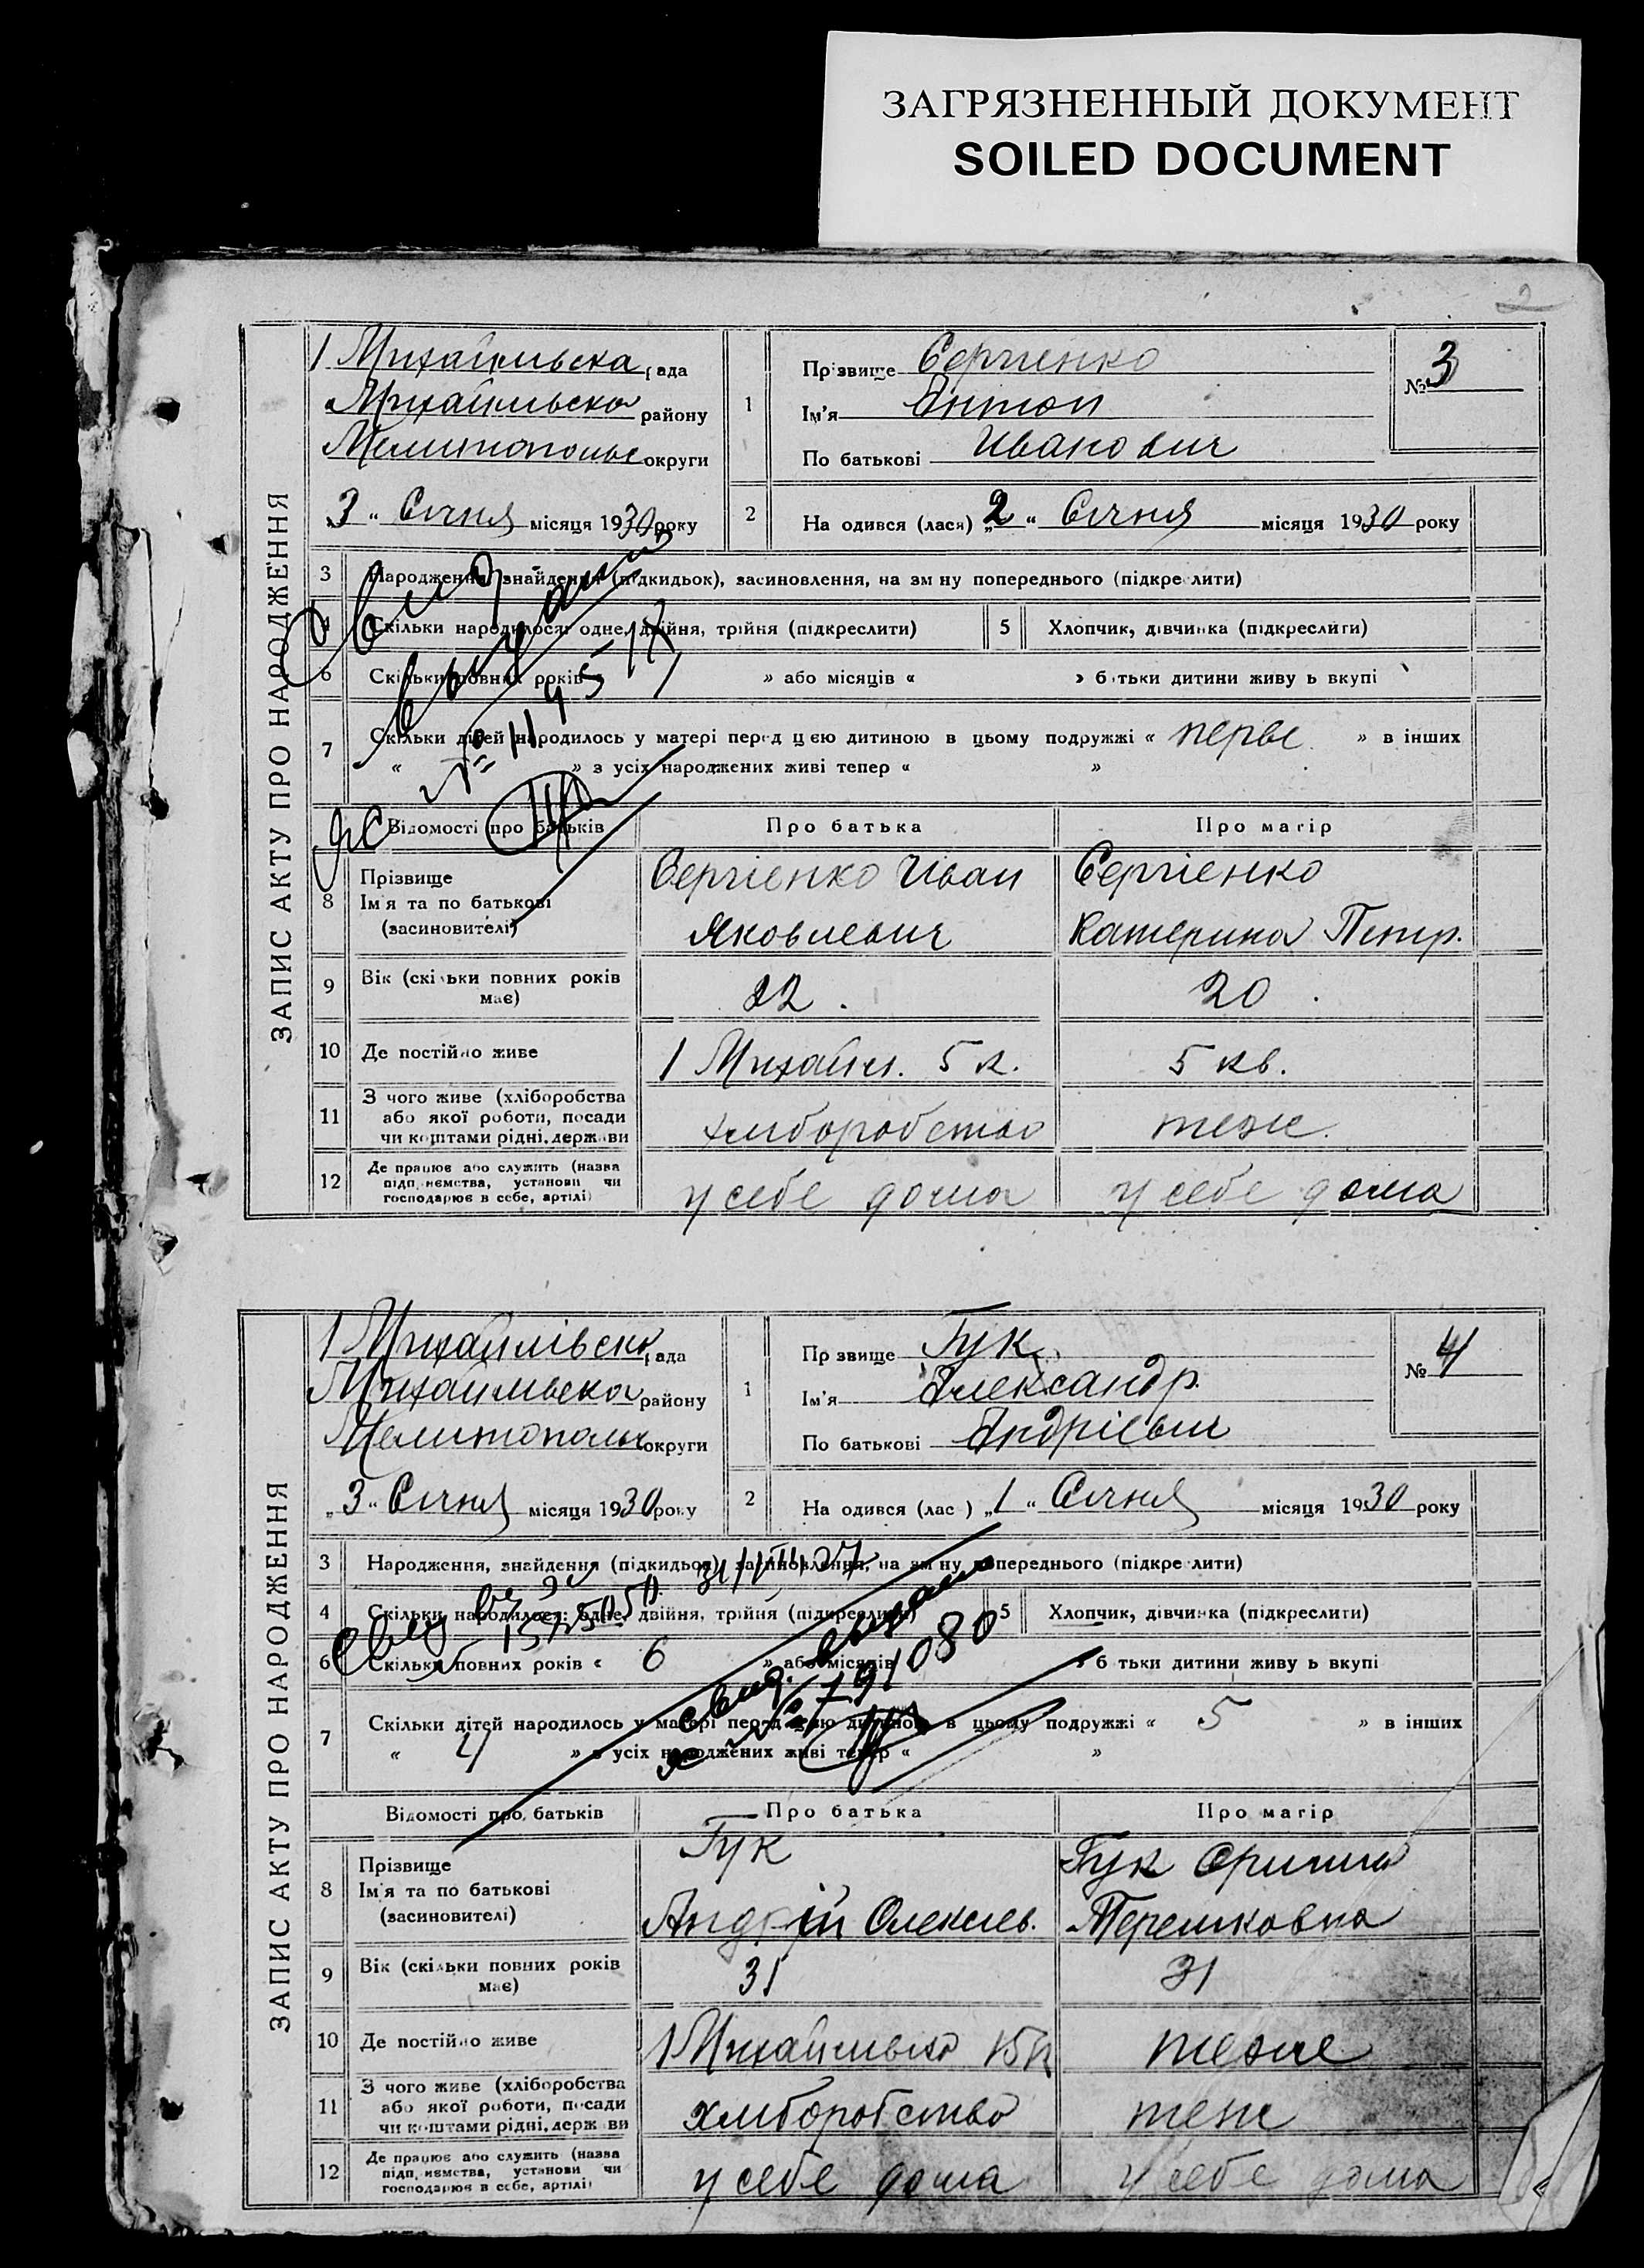 ЗАГРЯЗНЕННЫЙ ДОКУМЕНТ
SOILED DOCUMENT
2
ЗАПИС АКТУ ПРО НАРОДЖЕННЯ
1 Михайлівська рада
Михайлівська району
Мелитополье округи
"3" Січня місяця 1930 року
1
Прізвище Сергіенко
Ім'я Антон
По батькові Иванович
№ 3
2
На одився (лася) "2" Січня місяця 1930 року
3 Народження, знайдення (підкидьок), засиновлення, на зм ну попереднього (підкре лити)
4 Скільки народилося: одне, двійня, трійня (підкреслити)
5 Хлопчик, дівчинка (підкреслити)
6 Скільки повних років « » або місяців « » б тьки дитини живу ь вкупі
7 Скільки дітей народилось у матері перед цією дитиною в цьому подружжі « перве » в інших
« » з усіх народжених живі тепер « »
Відомості про батьків Про батька Про матір
8 Прізвище
Ім'я та по батькові
(засиновителі)
Сергіенко Иван
Яковлевич
Сергіенко
Катерина Петр.
9 Вік (скільки повних років має) 22. 20
10 Де постійно живе 1 Михайл. 5 к. 5 кв.
11 З чого живе (хліборобства
або якої роботи, посади
чи коштами рідні, держави
хліборобство теж.
12 Де працює або служить (назва
підп иємства, установи чи
господарює в себе, артілі)
у себе дома у себе дома
Свид
выдано
№
ЗАПИС АКТУ ПРО НАРОДЖЕННЯ
1 Михайлівска рада
Михайлівска району
Мелитополье округи
"3" Січня місяця 1930 року
1
Пр звище Гук
Ім'я Александр
По батькові Андрієвич
№ 4
2
На одився (лас ) "1" Січня місяця 1930 року
3 Народження, знайдення (підкидьок), засиновлення, на зм ну попереднього (підкре лити)
4 Скільки народилося: одне, двійня, трійня (підкреслити)
5 Хлопчик, дівчинка (підкреслити)
6 Скільки повних років « 6 » або місяців » б тьки дитини живу ь вкупі
7 Скільки дітей народилось у матері перед цією дитиною в цьому подружжі « 5 » в інших
« 4 » з усіх народжених живі тепер « »
свид. выдано
№ 791080
Відомості про батьків Про батька Про матір
8 Прізвище
Ім'я та по батькові
(засиновителі)
Гук
Андрій Олексіев.
Гук Орина
Терешковна
9 Вік (скільки повних років має) 31 31
10 Де постійно живе 1 Михайлівка 15к теже
11 З чого живе (хліборобства
або якої роботи, посади
чи коштами рідні, держ ви
хліборобство теж
12 Де працює або служить (назва
підп иємства, установи чи
господарює в себе, артілі)
у себе дома у себе дома